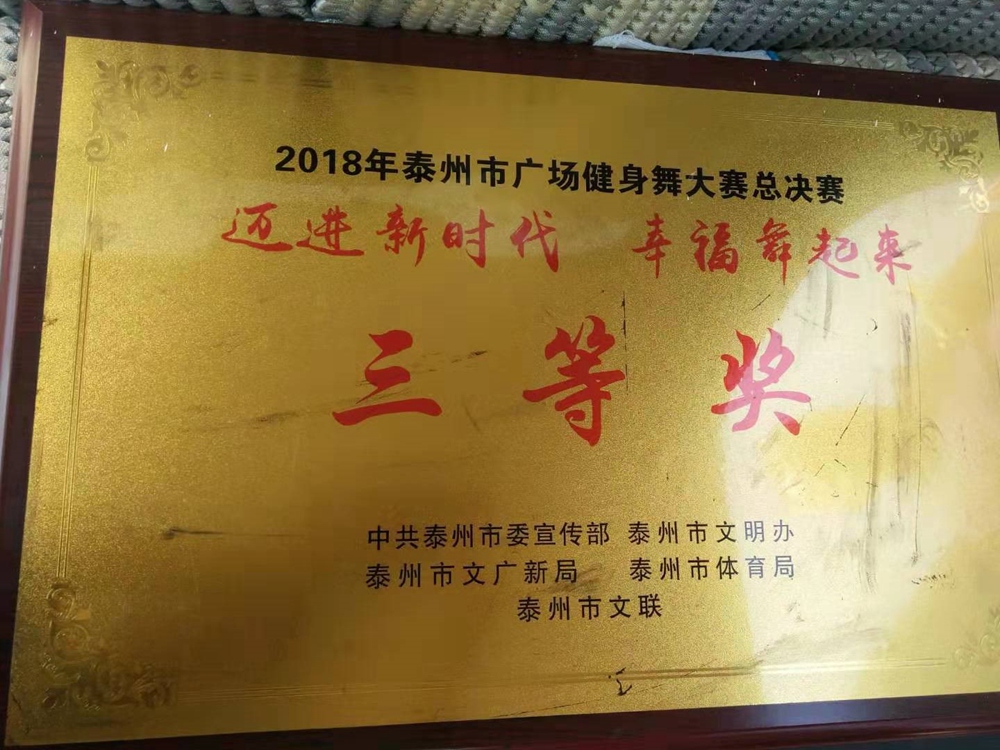 2018年泰州市广场健身舞大赛总决赛
迈进新时代 幸福舞起来
三等奖
中共泰州市委宣传部 泰州市文明办
泰州市文广新局 泰州市体育局
泰州市文联